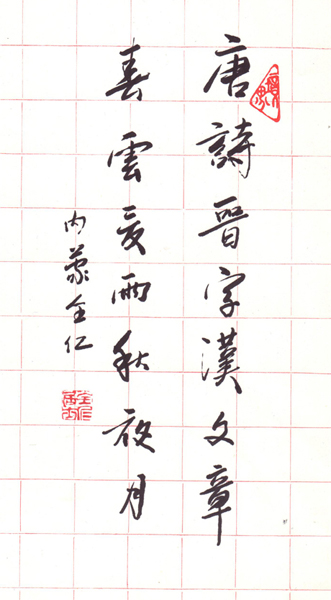 唐詩晉字漢文章
春雲夏雨秋夜月
内蒙全仁